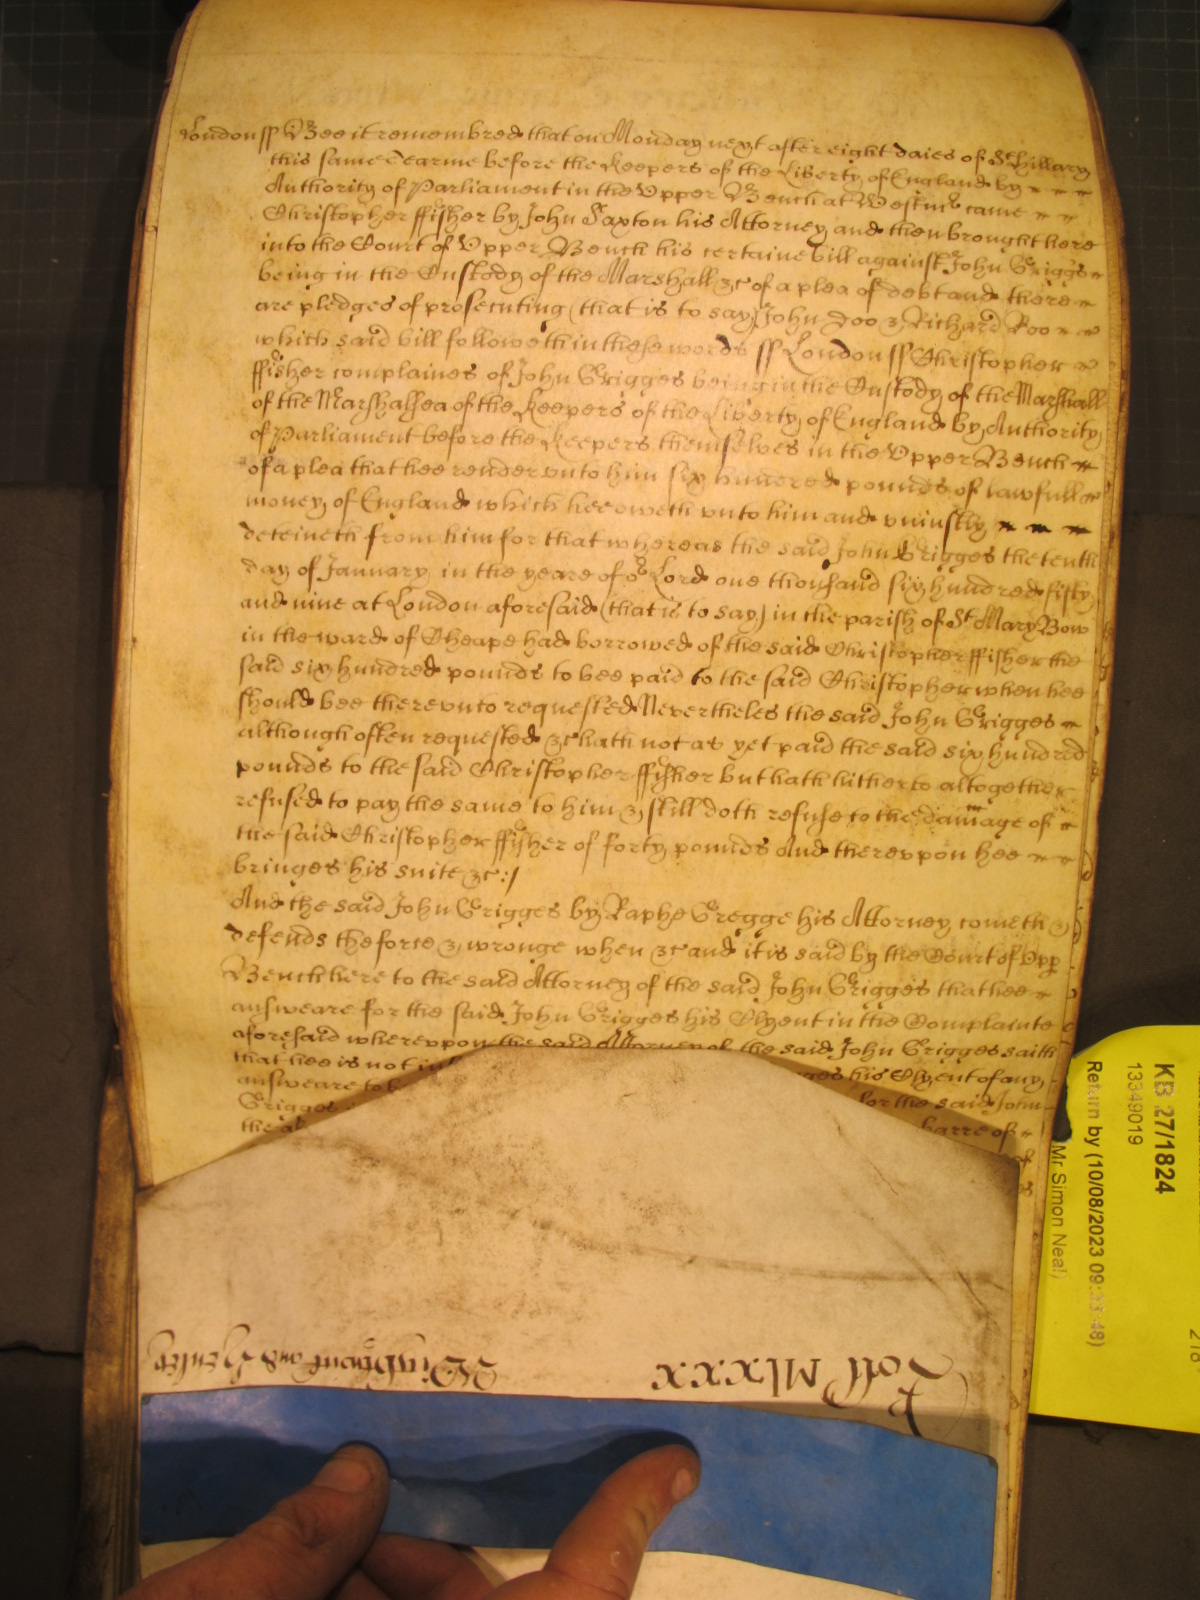 London ss Bee it remembred that on Monday next after eight daies of St Hillary
this same Tearme before the Keepers of the Liberty of England by
Authority of Parliament in the Vpper Bench at Westmr came
Christopher ffisher by John Saxton his Attorney and then brought here
into the Court of Vpper Bench his certaine bill against John Grigges
being in the Custody of the Marshall &c of a plea of debt and there
are pledges of prosecuting (that is to say) John Doo & Richard Roo
which said bill followeth in these words ss London ss Christopher
ffisher complaines of John Grigges being in the Custody of the Marshall
of the Marshalsea of the Keepers of the Liberty of England by Authority
of Parliament before the Keepers themselves in the Vpper Bench
of a plea that hee render vnto him six hundred pounds of lawfull
money of England which hee oweth vnto him and vniustly
deteineth from him for that whereas the said John Grigges the tenth
day of January in the yeare of or Lord one thousand six hundred fifty
and nine at London aforesaid (that is to say) in the parish of St Mary Bow
in the ward of Cheape had borrowed of the said Christopher ffisher the
said six hundred pounds to bee paid to the said Christopher when hee
should bee therevnto requested Nevertheles the said John Grigges
although often requested &c hath not as yet paid the said six hundred
pounds to the said Christopher ffisher but hath hitherto altogether
refused to pay the same to him & still doth refuse to the damage of
the said Christopher ffisher of forty pounds And therevpon hee
bringes his suite &c:/
And the said John Grigges by Raphe Gregge his Attorney cometh &
defends the force & wronge when &c and it is said by the Court of Vpp
Bench here to the said Attorney of the said John Grigges that hee
answeare for the said John Grigges his Clyent in the Complainte
aforesaid wherevpon the said Attorney of the said John Grigges saith
that hee is not in his Clyent of any
answeare to for the said John
Grigges
the barre of
of
Roll Mlxxx
Wightwick and Henley
KB 27/1824
13349019
Return by (10/08/2023 09:33:48)
Mr Simon Neal)